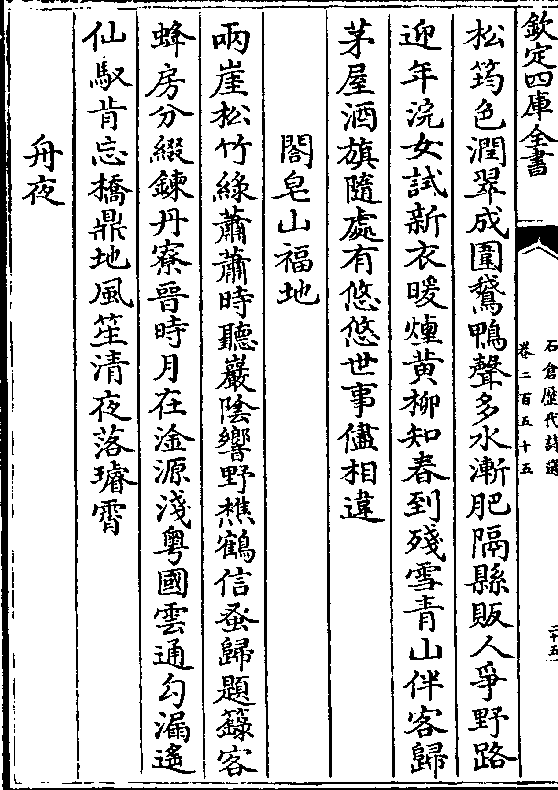 欽定四庫全書
石倉歷代詩選
卷二百五十五
松筠色潤翠成圍鵞鴨聲多水漸肥隔縣販人爭野路
迎年浣女試新衣暖煙黄柳知春到殘雪青山伴客歸
茅屋酒旗隨處有悠悠世事儘相違
閤皂山福地
兩崖松竹綠蕭蕭時聽巖陰響野樵鶴信蚤歸題籙客
蜂房分綴鍊丹寮晉時月在淦源淺粤國雲通勾漏遙
仙馭肯忘橋鼎地風笙清夜落璿霄
舟夜